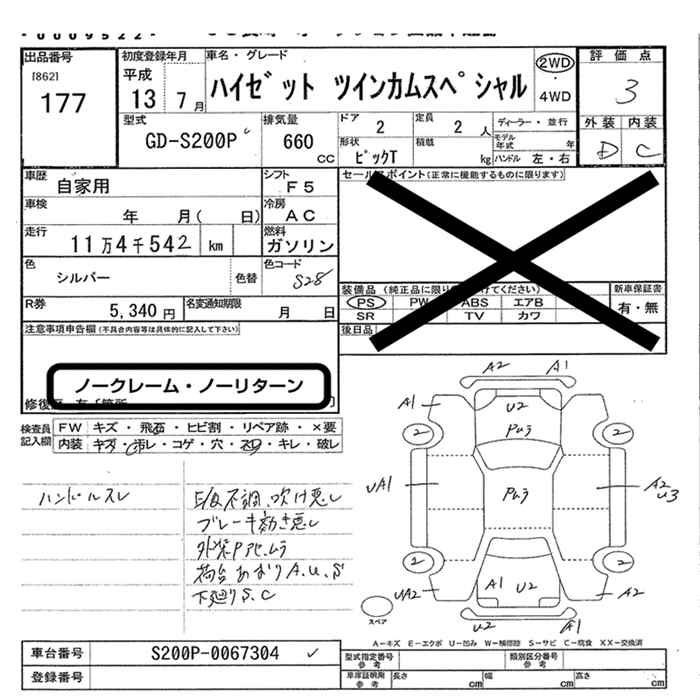 出品番号
[862]
177
初度登録年月
平成
13 7月
車名・グレード
ハイゼット ツインカムスペシャル
2WD
・
4WD
評価点
3
外装 内装
D C
型式
GD-S200P
排気量
660
CC
ドア
2
定員
2 人
ディーラー・並行
モデル年式 年
ハンドル 左・右
形状
ピックT
積載
kg
車歴
自家用
シフト
F5
セールスポイント(正常に機能するものに限ります)
車検
年 月( 日)
冷房
AC
走行
11万4千542 km
燃料
ガソリン
色
シルバー
色替
色コード
S28
装備品(純正品に限り
けてください)
PS PW ABS エアB
SR TV カワ
新車保証書
有・無
R券
5,340 円
名変通知期限
月 日
後日品
注意事項申告欄(不具合内容等は具体的に記入して下さい)
ノークレーム・ノーリターン
検査員記入欄
FW キズ・飛石・ヒビ割・リペア跡・×要
内装 キズ・汚レ・コゲ・穴・スレ・キレ・破レ
ハンドルスレ
E/g不調、吹け悪し
ブレーキ効き悪し
外装Pアセ、ムラ
荷台あおりA.U.S
下廻りS.C
A2 A1
A1 U2
Pムラ
2 2
UA1 Pムラ A2
U3
2 2
UA2 A1 U2 A2
U2 A1
スペア
A-キズ E-エクボ U-凹み W-補修跡 S-サビ C-腐食 XX-交換済
車台番号
S200P-0067304
登録番号
型式指定番号
参考
類別区分番号
参考
車庫証明用
参考
長さ cm 幅 cm 高さ cm